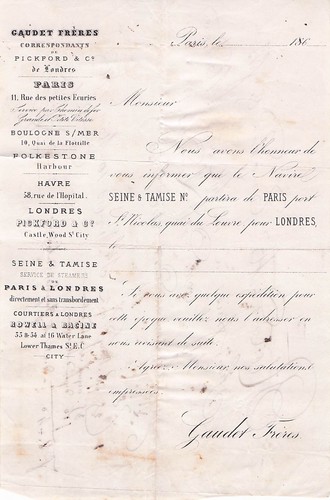 GAUDET FRÈRES
CORRESPONDANTS
DE
PICKFORD & Co
de Londres
PARIS
11, Rue des petites Ecuries
Service par Chemin de fer
Grande et Petite Vitesse
BOULOGNE S/MER
10, Quai de la Flottille
FOLKESTONE
Harbour
HAVRE
58, rue de l'Hopital.
LONDRES
PICKFORD & Co
Castle, Wood St City
SEINE & TAMISE
SERVICE DE STEAMERS
DE
PARIS À LONDRES
directement et sans transbordement
COURTIERS À LONDRES
ROWELL & RACINE
33 & 34 at 16 Water Lane
Lower Thames St. E.C.
CITY
Paris, le 186
Monsieur
Nous avons l'honneur de
vous informer que le Navire
SEINE & TAMISE No partira de PARIS port
St Nicolas, quai du Louvre pour LONDRES,
le
Si vous avez quelque expédition pour
cette époque veuillez nous l'adresser en
nous avisant de suite.
Agréez, Monsieur, nos salutations
empressées.
Gaudet Frères.